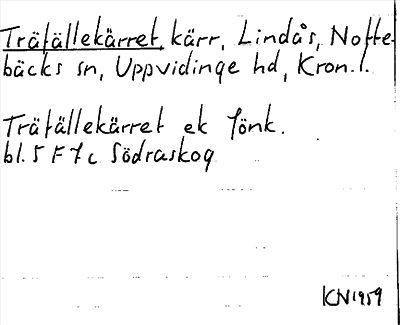 Träfällekärret, kärr, Lindås, Notte-
bäcks sn, Uppvidinge hd, Kron.l.
Träfällekärret ek Jönk.
bl. 5 F 7 c Södraskog
KN 1959